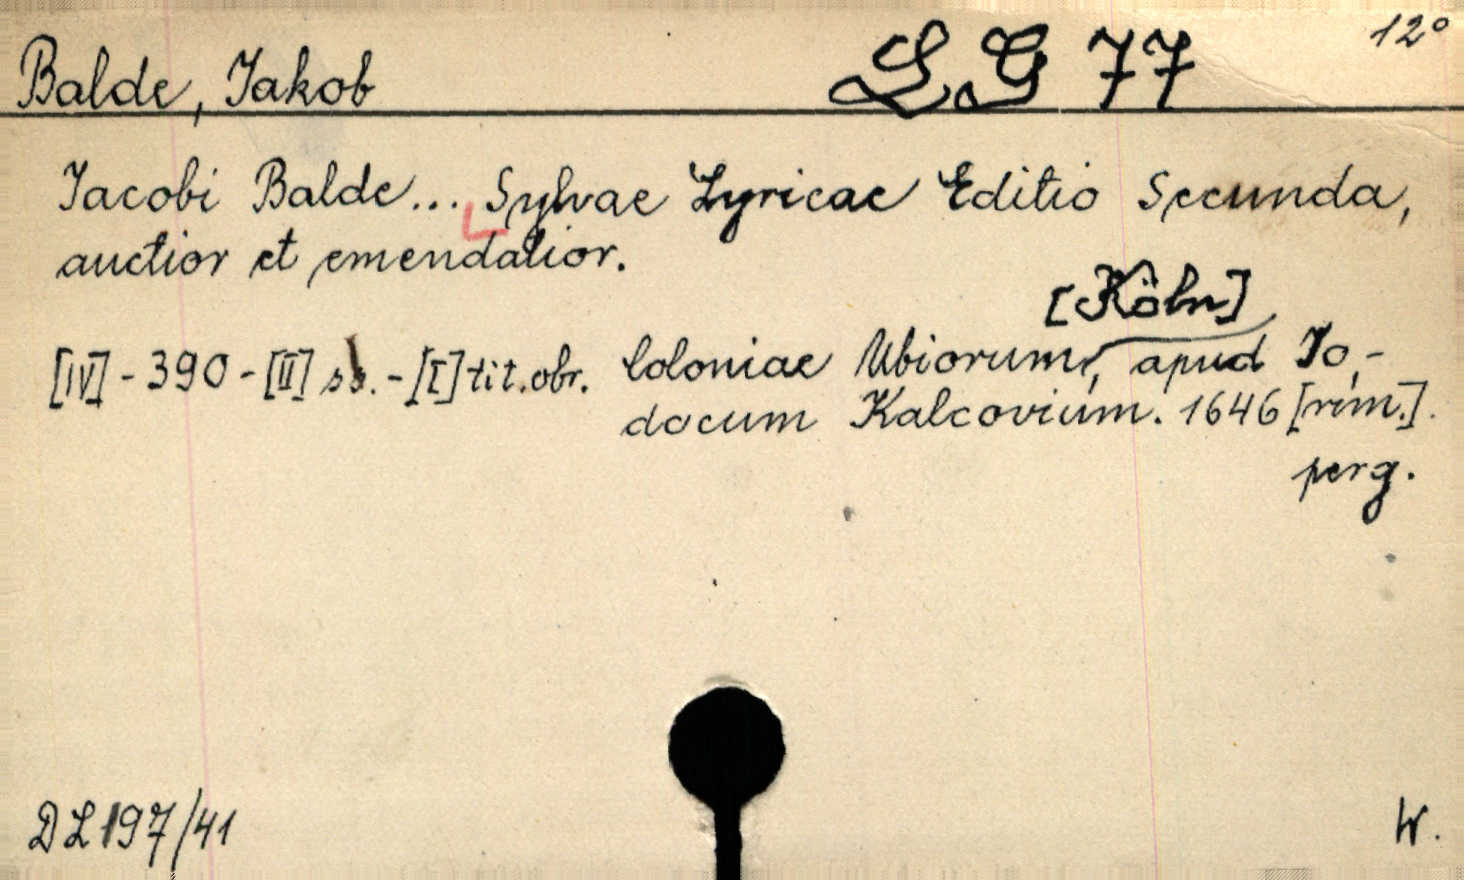 12°
Balde, Jakob LG 77
Jacobi Balde... Sylvae Lyricae Editio Secunda,
auctior et emendatior.
[Köln]
[IV] - 390 - [II] ss. - [I] tit. obr. Coloniae Ubiorum, apud Jo-
docum Kalcovium. 1646 [rím.].
perg.
DL 197/41 W.